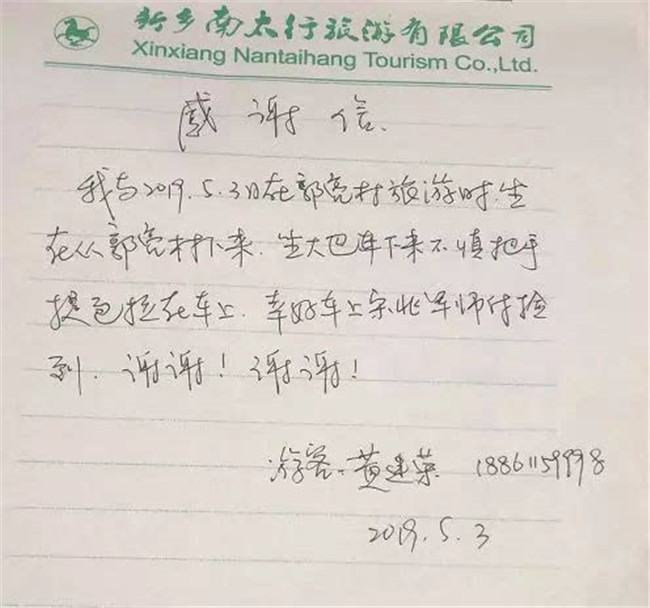 新乡南太行旅游有限公司
Xinxiang Nantaihang Tourism Co.,Ltd.
感谢信
我与2019.5.3日在郭亮村旅游时.坐
在从郭亮村下来.坐大巴车下来不慎把手
提包拉在车上.幸好车上宋兆军师付捡
到.谢谢!谢谢!
游客:黄建荣 18861159998
2019.5.3